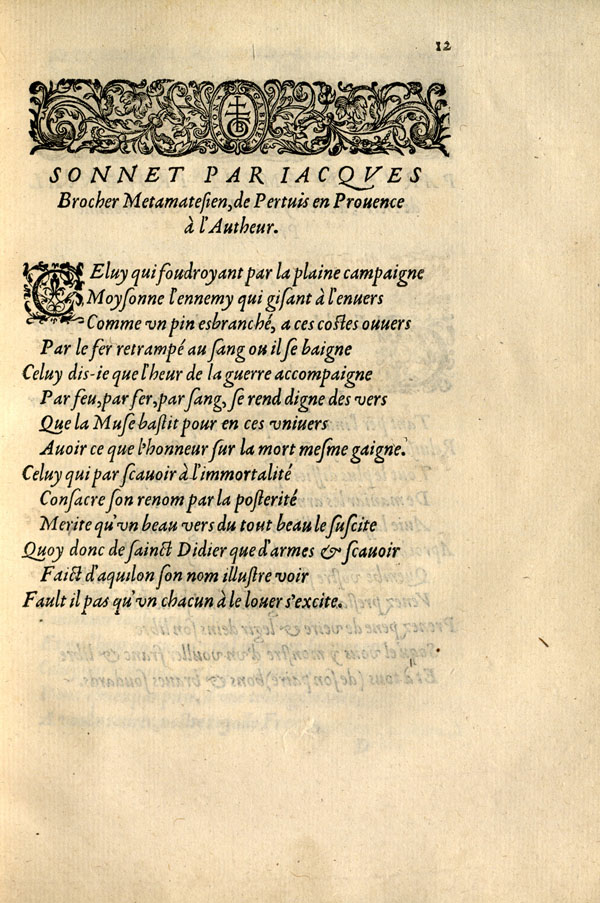 12
SONNET PAR IACQVES
Brocher Metamatesien, de Pertuis en Prouence
à l'Autheur.
CEluy qui foudroyant par la plaine campaigne
Moyſonne l'ennemy qui giſant à l'enuers
Comme vn pin esbranché, a ces coſtes ouuers
Par le fer retrampé au ſang ou il ſe baigne
Celuy dis-ie que l'heur de la guerre accompaigne
Par feu, par fer, par ſang, ſe rend digne des vers
Que la Muſe baſtit pour en ces vniuers
Auoir ce que l'honneur ſur la mort meſme gaigne.
Celuy qui par ſcauoir à l'immortalité
Conſacre ſon renom par la poſterité
Merite qu'vn beau vers du tout beau le ſuſcite
Quoy donc de ſainct Didier que d'armes & ſcauoir
Faict d'aquilon ſon nom illuſtre voir
Fault il pas qu'vn chacun à le louer s'excite.